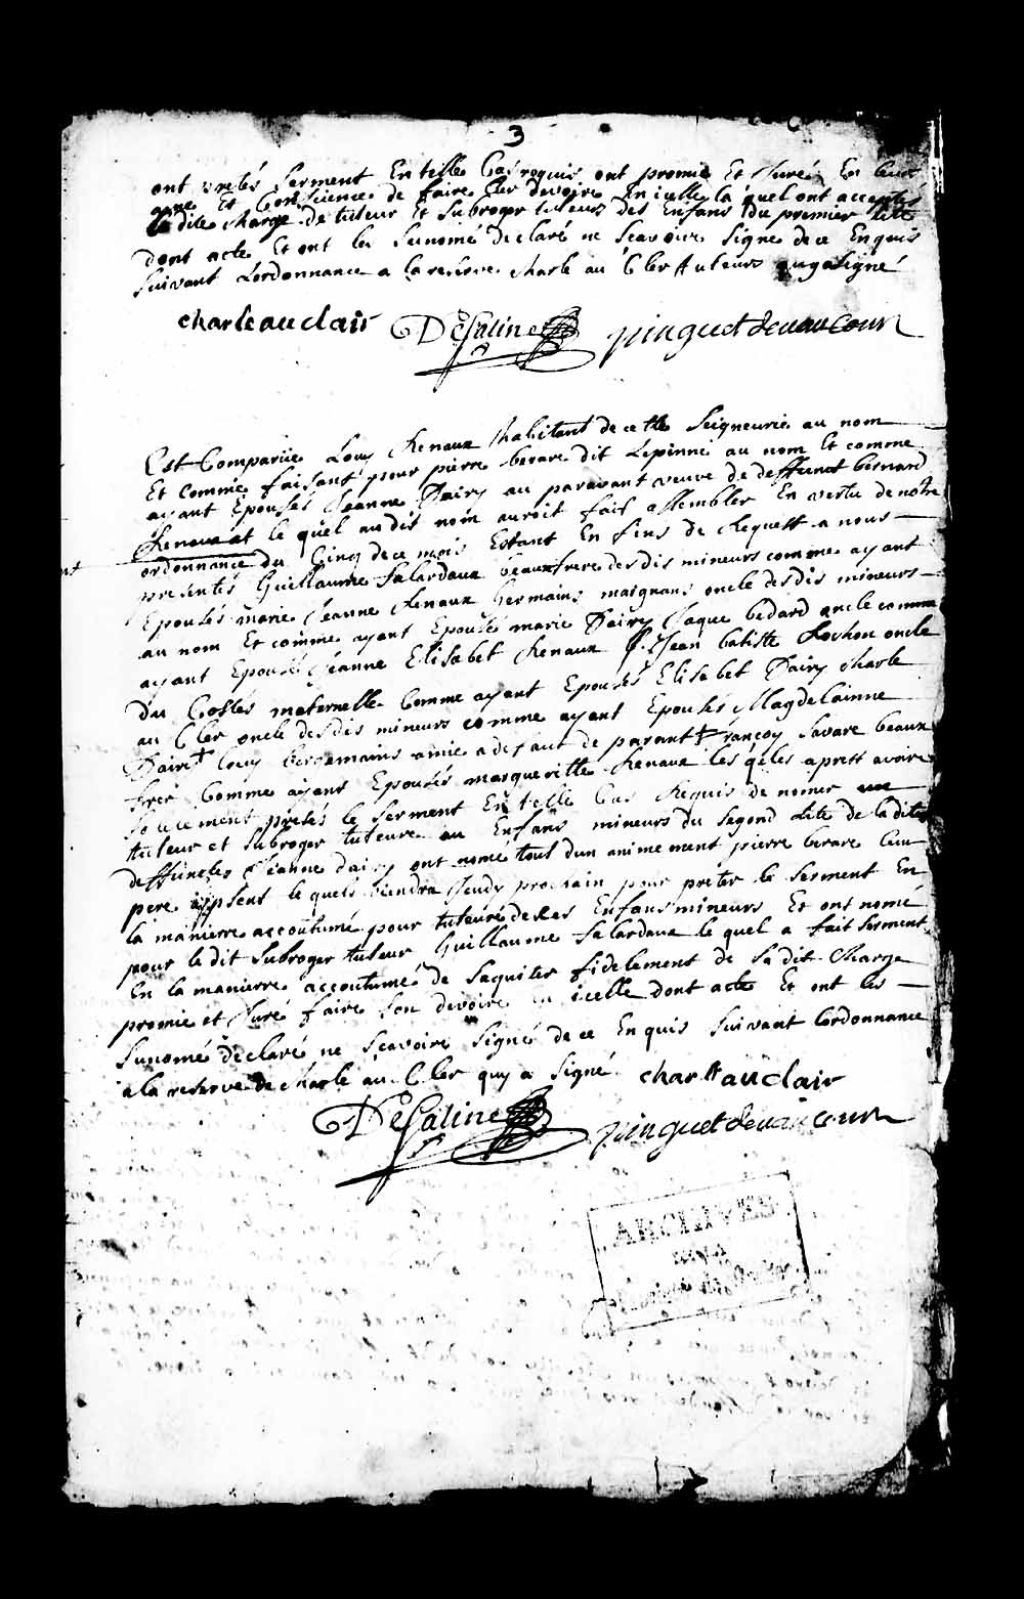 3
ont pretés Serment En telle Cas requis ont promis Et Jurés En leurs
ame Et Conscience de faire Ler devoire En icelle la quel ont acceptés
la dite charge de tuteur Et Subroger tuteurs des Enfans du premier lite
dont acte Et ont les Sunomé declaré ne Scavoire Signe de ce Enquis
Suivant Lordonnance a la reserve charle au Cler quy a Signé
charle auclair DeSaline pinguet devaucour
Est Comparüe Louy Renaux habitant de cette Seigneurie au nom
Et comme faisant pour pierre berare dit Lepinne au nom Et comme
ayant Epousés Jeanne Dairy au paravant veuve de deffunct bernard
Renaux at le quel au dis nom auroit fait assembler En vertu de notre
ordonnance du Cinq de ce mois Estant En fins de Requette a nous
presentés Guillaume falardaux beauxfrere des dis mineurs comme ayant
Epousés marie Jeanne Renaux Germains maignans oncle des dis mineurs
au nom Et comme ayant Epousé marie Dairy Jaque bedard oncle comme
ayant Epousé Jeanne Elisabet Renaux Jean batiste Lochon oncle
du Costés maternelle Comme ayant Epousés Elisabet Dairy charle
au Cler oncle des dis mineurs comme ayant Epousés Magdelainne
Daire Louy Bergemains amie a defaut de parant françoy Savare beaux
frere Comme ayant Epousés margueritte Renaux les qules aprest avoire
Seulement pretés le Serment En telle Cas Requis de nomer un
tuteur et Subroger tuteure au Enfans mineurs du Segond Lite de la dite
deffuncte Jeanne dairy ont nomé tout dun animement pierre berare leur
pere absent le quels viendra Jeudy prochain pour preter le Serment En
la manierre accoutumé pour tuteure desdes Enfans mineurs Et ont nomé
pour le dit Subroger tuteur Guillaume falardaux le quel a fait Serment
En la manierre accoutumé de Saquiter fidelement de Sa dit Charge
promie et Juré faire Son devoire en icelle dont acte Et ont les
Sunomé declaré ne Scavoire Signé de ce Enquis Suivant Lordonnance
a la reserve de charle au Cler quy a Signé charle auclair
DeSaline pinguet devaucour